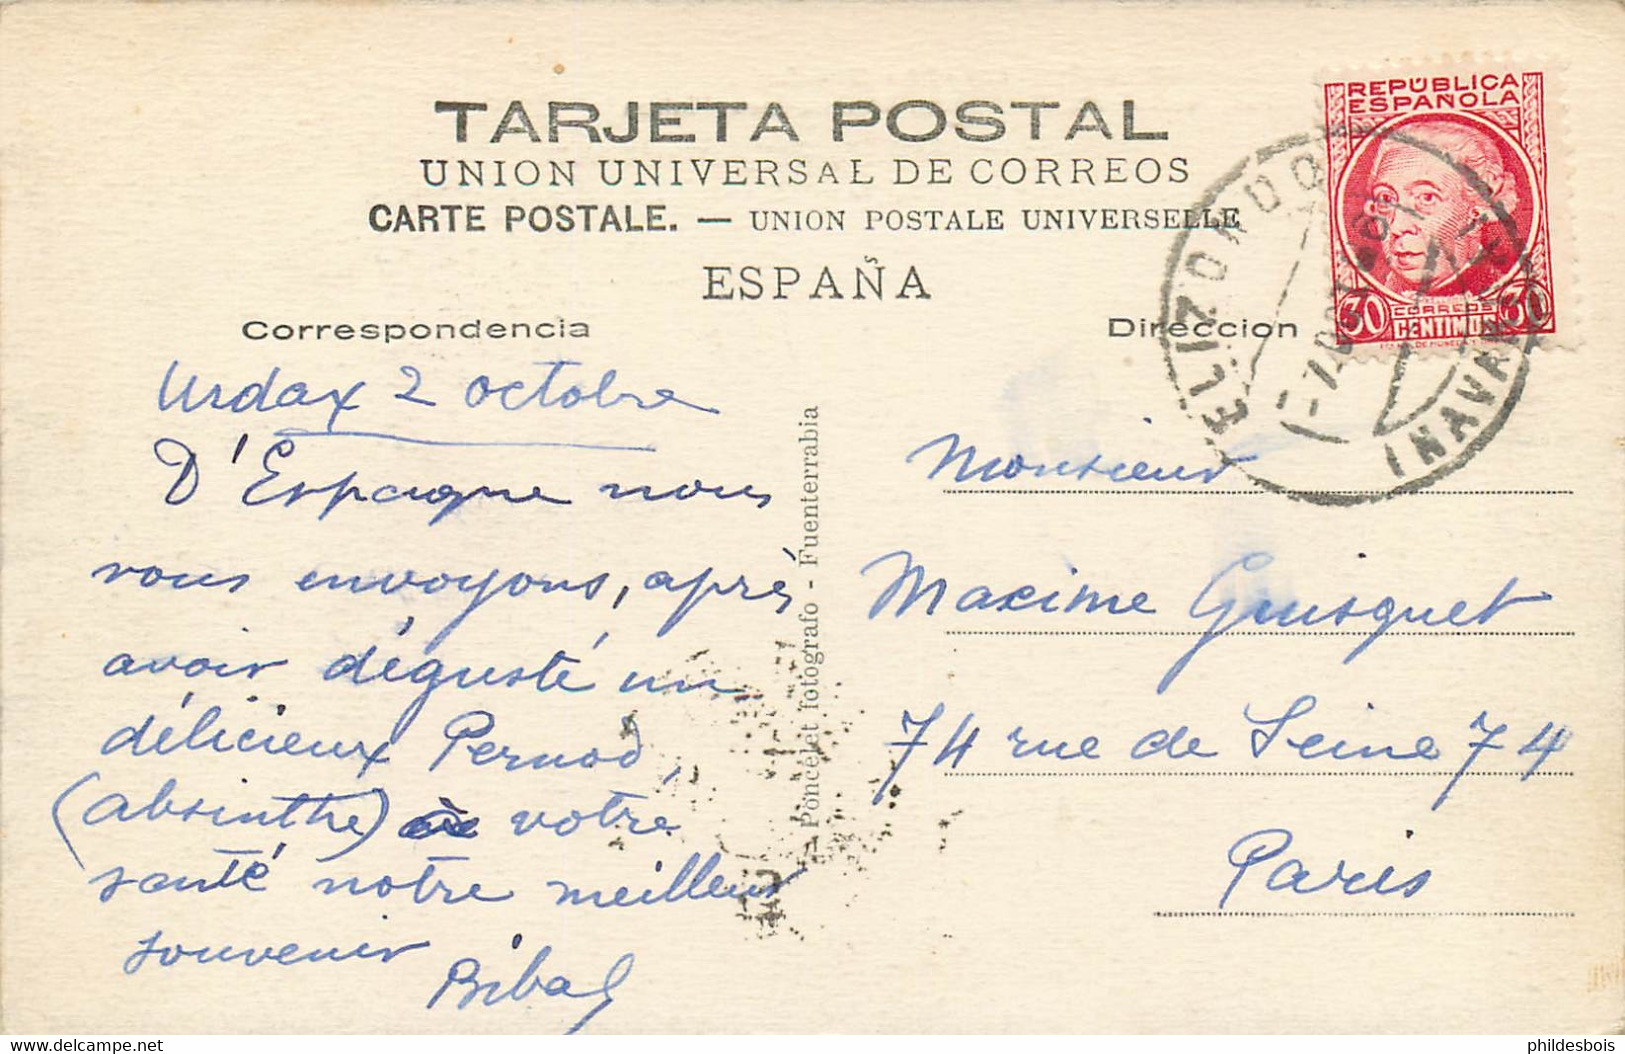 TARJETA POSTAL
UNION UNIVERSAL DE CORREOS
CARTE POSTALE. — UNION POSTALE UNIVERSELLE
ESPAÑA
Correspondencia
Direccion
REPÚBLICA
ESPAÑOLA
30 CORREOS 30
CENTIMOS
ELIZONDO
(NAVARRA)
Urdax 2 octobre
D'Espagne nous
vous envoyons, après
avoir dégusté un
délicieux Pernod,
(absinthe) à votre
santé notre meilleur
souvenir
Bibal
Poncelet fotografo - Fuenterrabia
Monsieur
Maxime Guisquet
74 rue de Seine 74
Paris
www.delcampe.net
phildesbois